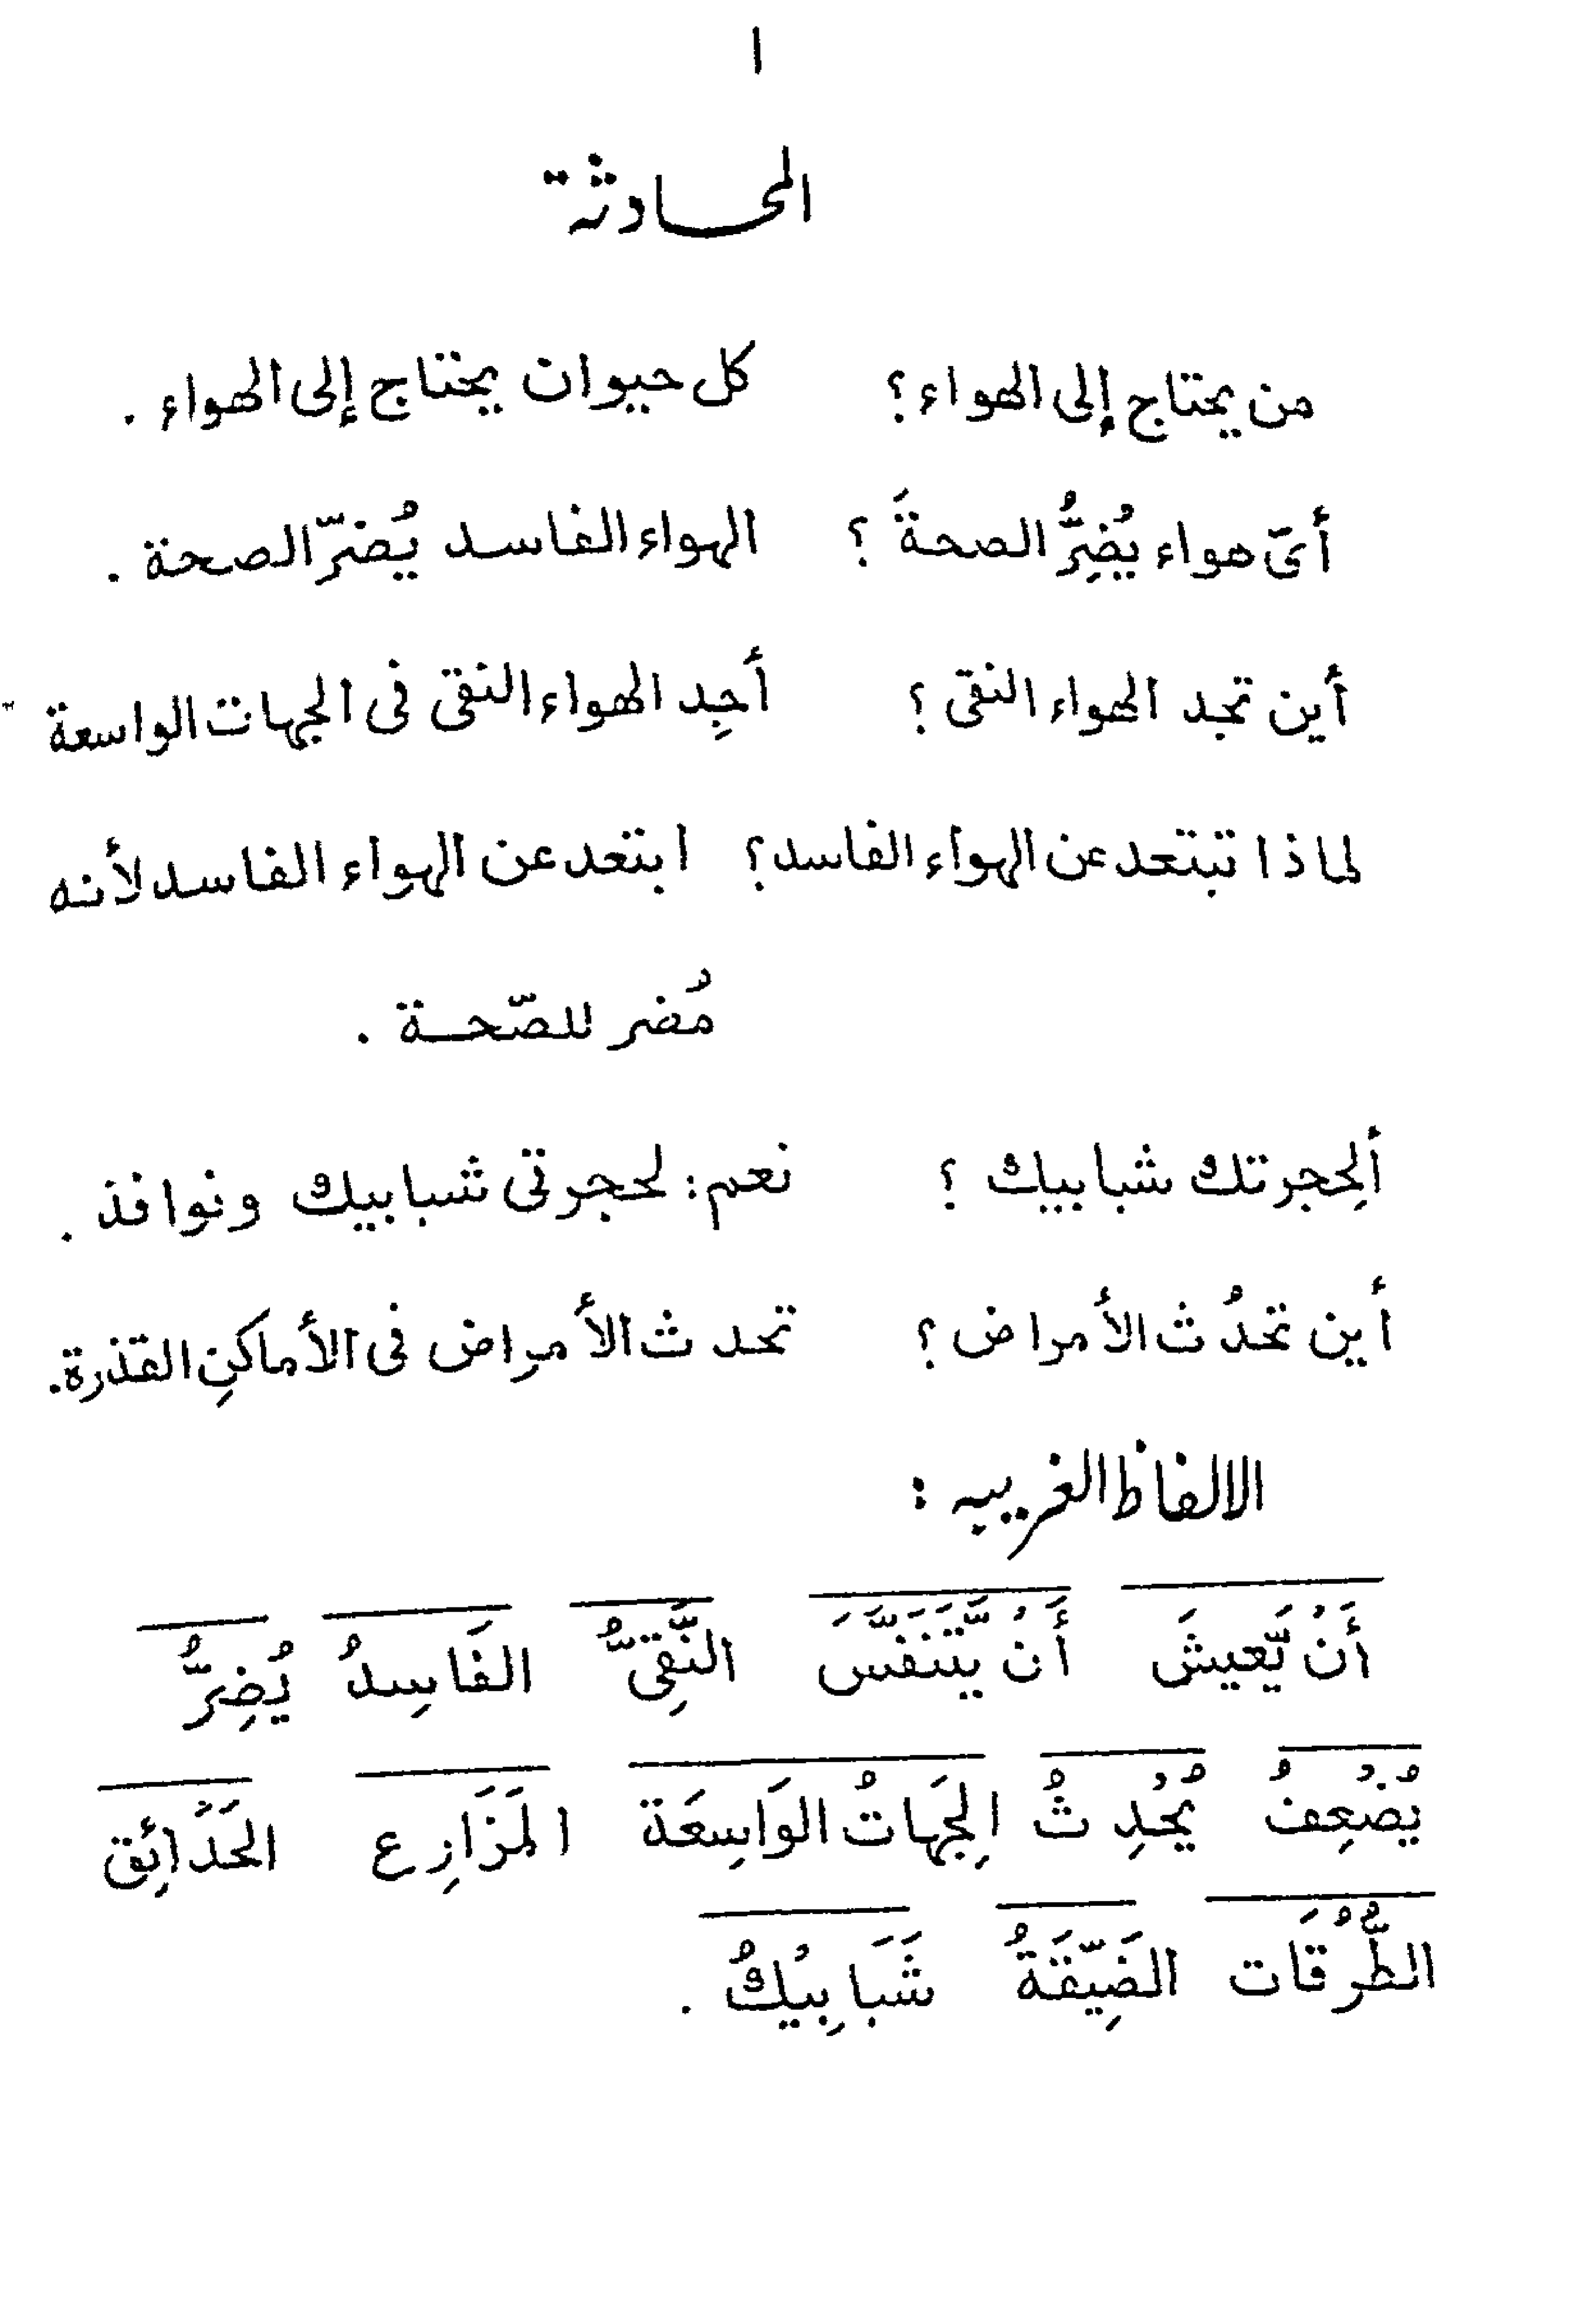 ا
المحادثة
من يحتاج إلى الهواء؟ كل حيوان يحتاج إلى الهواء .
أىّ هواء يُضِرُّ الصحةَ ؟ الهواء الفاسد يُضرّ الصحة .
أين تجد الهواء النقى ؟ أجِد الهواء النقى فى الجهات الواسعة
لماذا تبتعد عن الهواء الفاسد؟ ابتعد عن الهواء الفاسد لأنه
مُضر للصّحة .
ألِحجرتك شبابيك ؟ نعم: لحجرتى شبابيك ونوافذ .
أين تحدُث الأمراض ؟ تحدث الأمراض فى الأماكنِ القذرة.
الالفاظ الغريبه :
أَنْ يَّعيشَ أَنْ يَّتَنَفَّسَ النَّقِىُّ الفَاسِدُ يُضِرُّ
يُضْعِفُ يُحْدِثُ الجِهَاتُ الوَاسِعَة المَزَازِع الحَدَائِق
الطُّرُقَات الضَيِّقَةُ شَبَابِيْكُ .